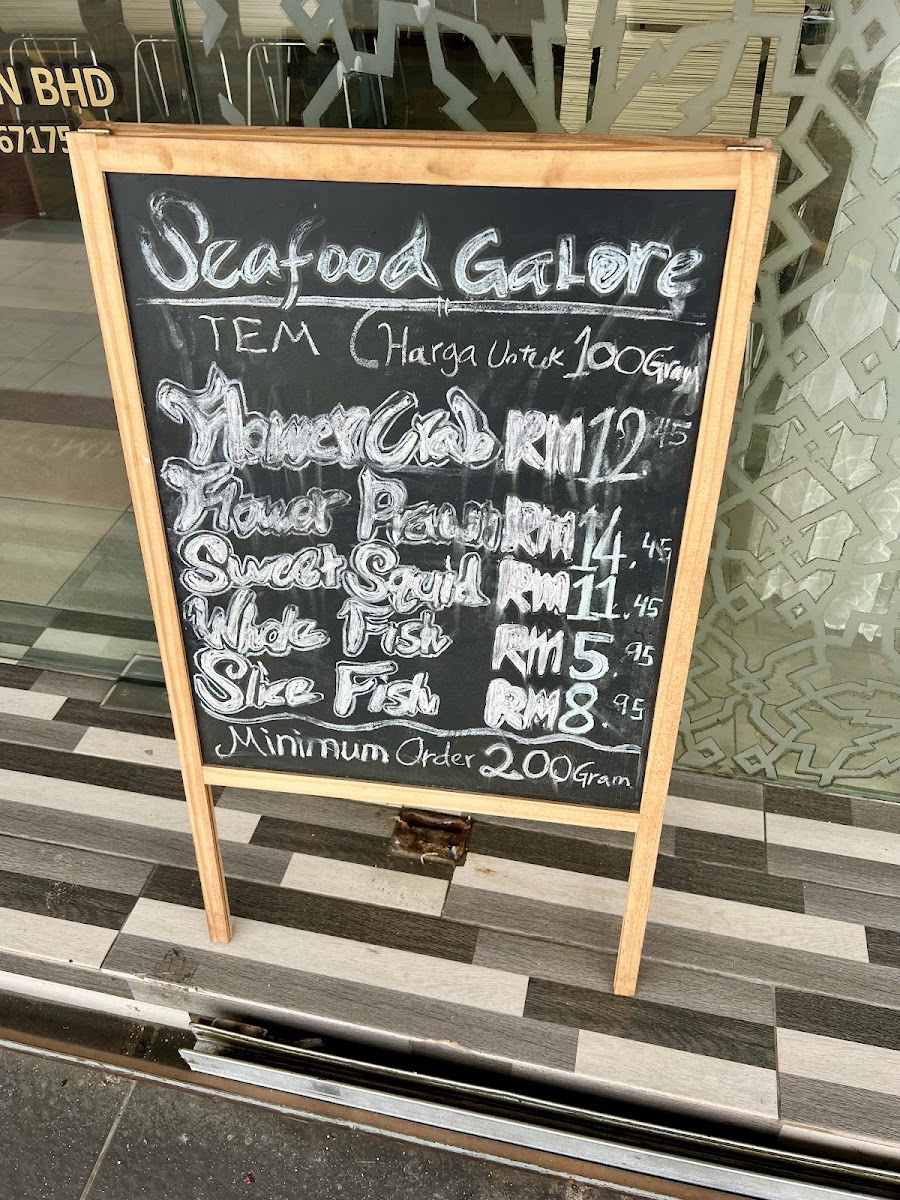 N BHD
67175
Seafood Galore
TEM Harga Untuk 100Gram
Flower Crab RM 12.45
Flower Prawn RM 14.45
Sweet Squid RM 11.45
Whole Fish RM 5.95
Slice Fish RM 8.95
Minimum Order 200Gram